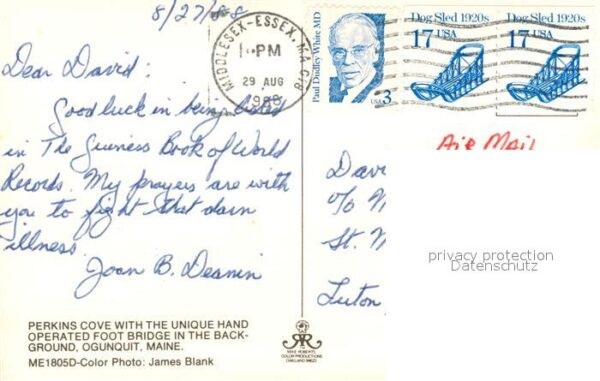 8/27/88
MIDDLESEX-ESSEX, MA 018
PM
29 AUG
1988
Paul Dudley White MD
USA 3
Dog Sled 1920s
17 USA
Dog Sled 1920s
17 USA
Air Mail
Dear David:
Good luck in being listed
in The Guiness Book of World
Records. My prayers are with
you to fight that darn
illness.
Joan B. Deanin
Davi
c/o M
St. M
Luton
privacy protection
Datenschutz
PERKINS COVE WITH THE UNIQUE HAND
OPERATED FOOT BRIDGE IN THE BACK-
GROUND, OGUNQUIT, MAINE.
ME1805D-Color Photo: James Blank
MIKE ROBERTS
COLOR PRODUCTIONS
OAKLAND 94623